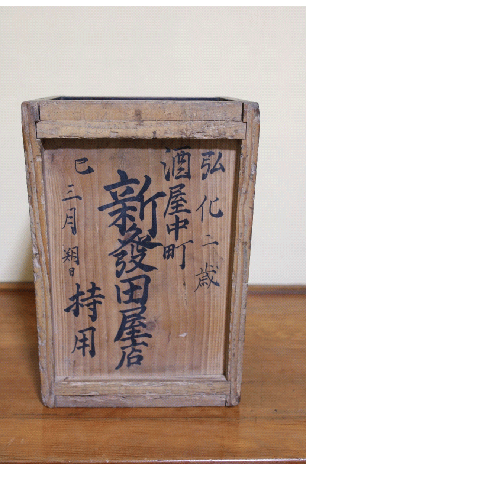 弘化二歳
酒屋中町
新發田屋店
巳三月朔日
持用